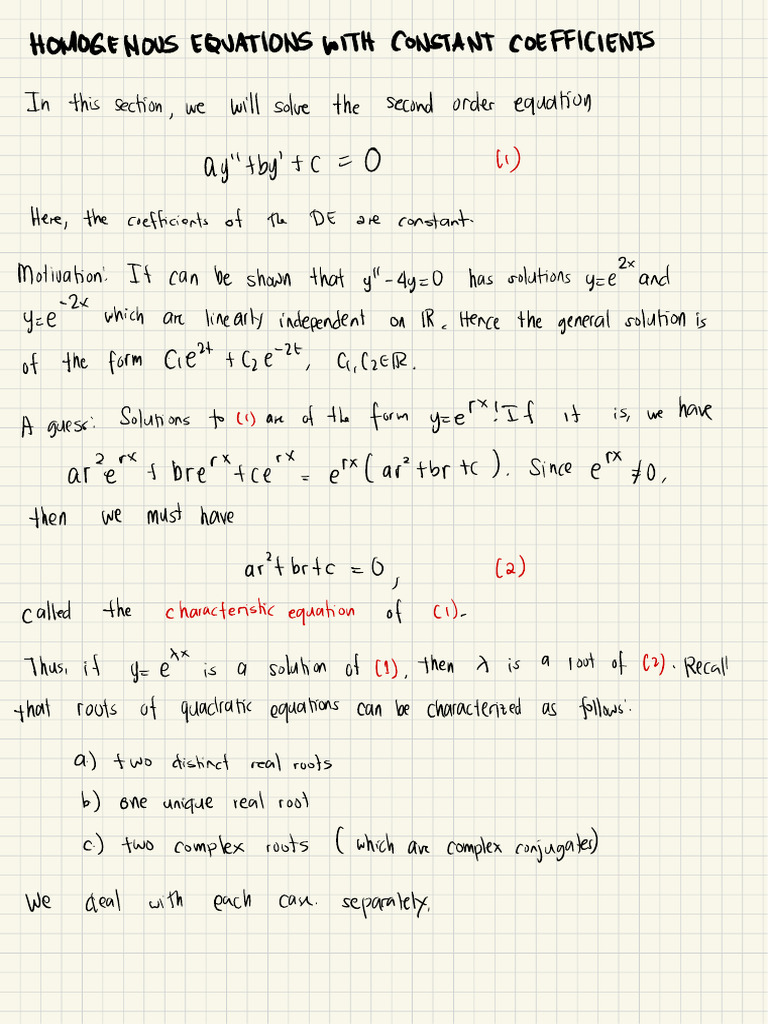 HOMOGENOUS EQUATIONS WITH CONSTANT COEFFICIENTS
In this section, we will solve the second order equation
ay'' + by' + c = 0 (1)
Here, the coefficients of the DE are constant.
Motivation: It can be shown that y'' - 4y = 0 has solutions y=e^{2x} and
y=e^{-2x} which are linearly independent on ℝ. Hence the general solution is
of the form C₁e^{2t} + C₂e^{-2t}, C₁, C₂∈ℝ.
A guess: Solutions to (1) are of the form y=e^{rx}! If it is, we have
ar²e^{rx} + bre^{rx} + ce^{rx} = e^{rx}(ar² + br + c). Since e^{rx} ≠ 0,
then we must have
ar² + br + c = 0, (2)
called the characteristic equation of (1).
Thus, if y = e^{λx} is a solution of (1), then λ is a root of (2). Recall
that roots of quadratic equations can be characterized as follows:
a.) two distinct real roots
b.) one unique real root
c.) two complex roots (which are complex conjugates)
We deal with each case separately.